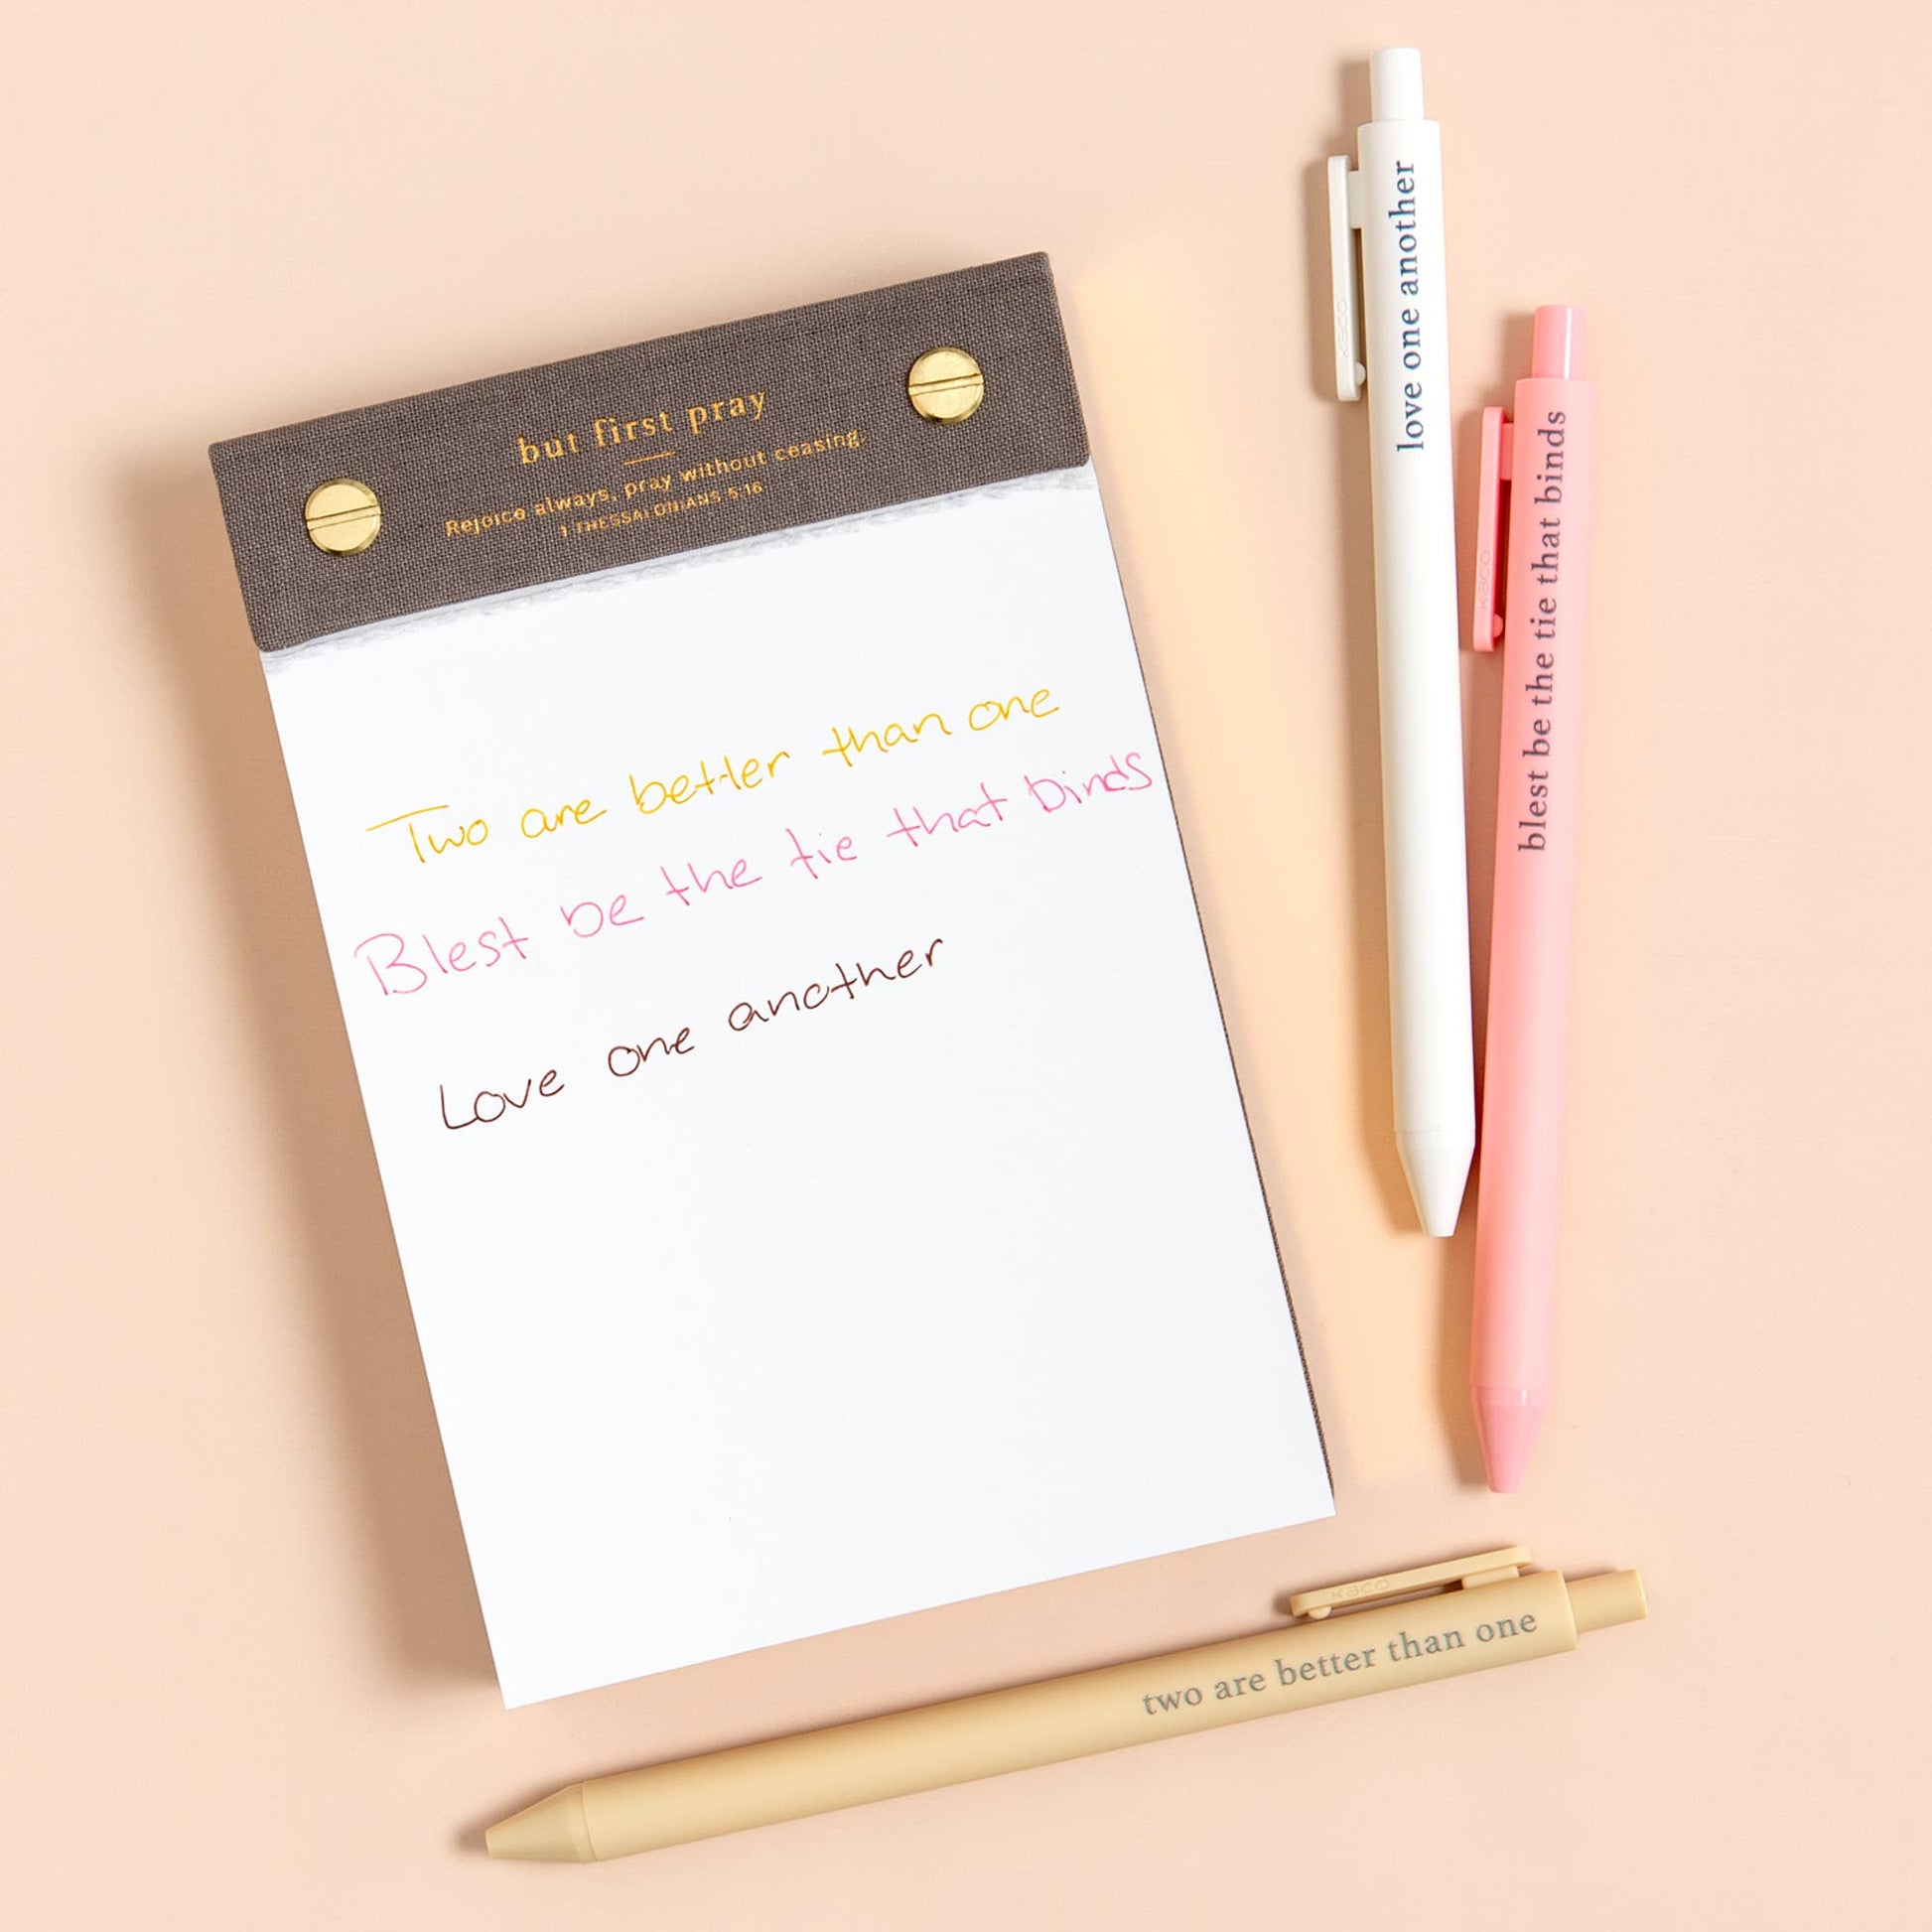 but first pray
Rejoice always, pray without ceasing.
1 THESSALONIANS 5:16
Two are better than one
Blest be the tie that binds
Love one another
love one another
kaco
blest be the tie that binds
kaco
kaco
two are better than one